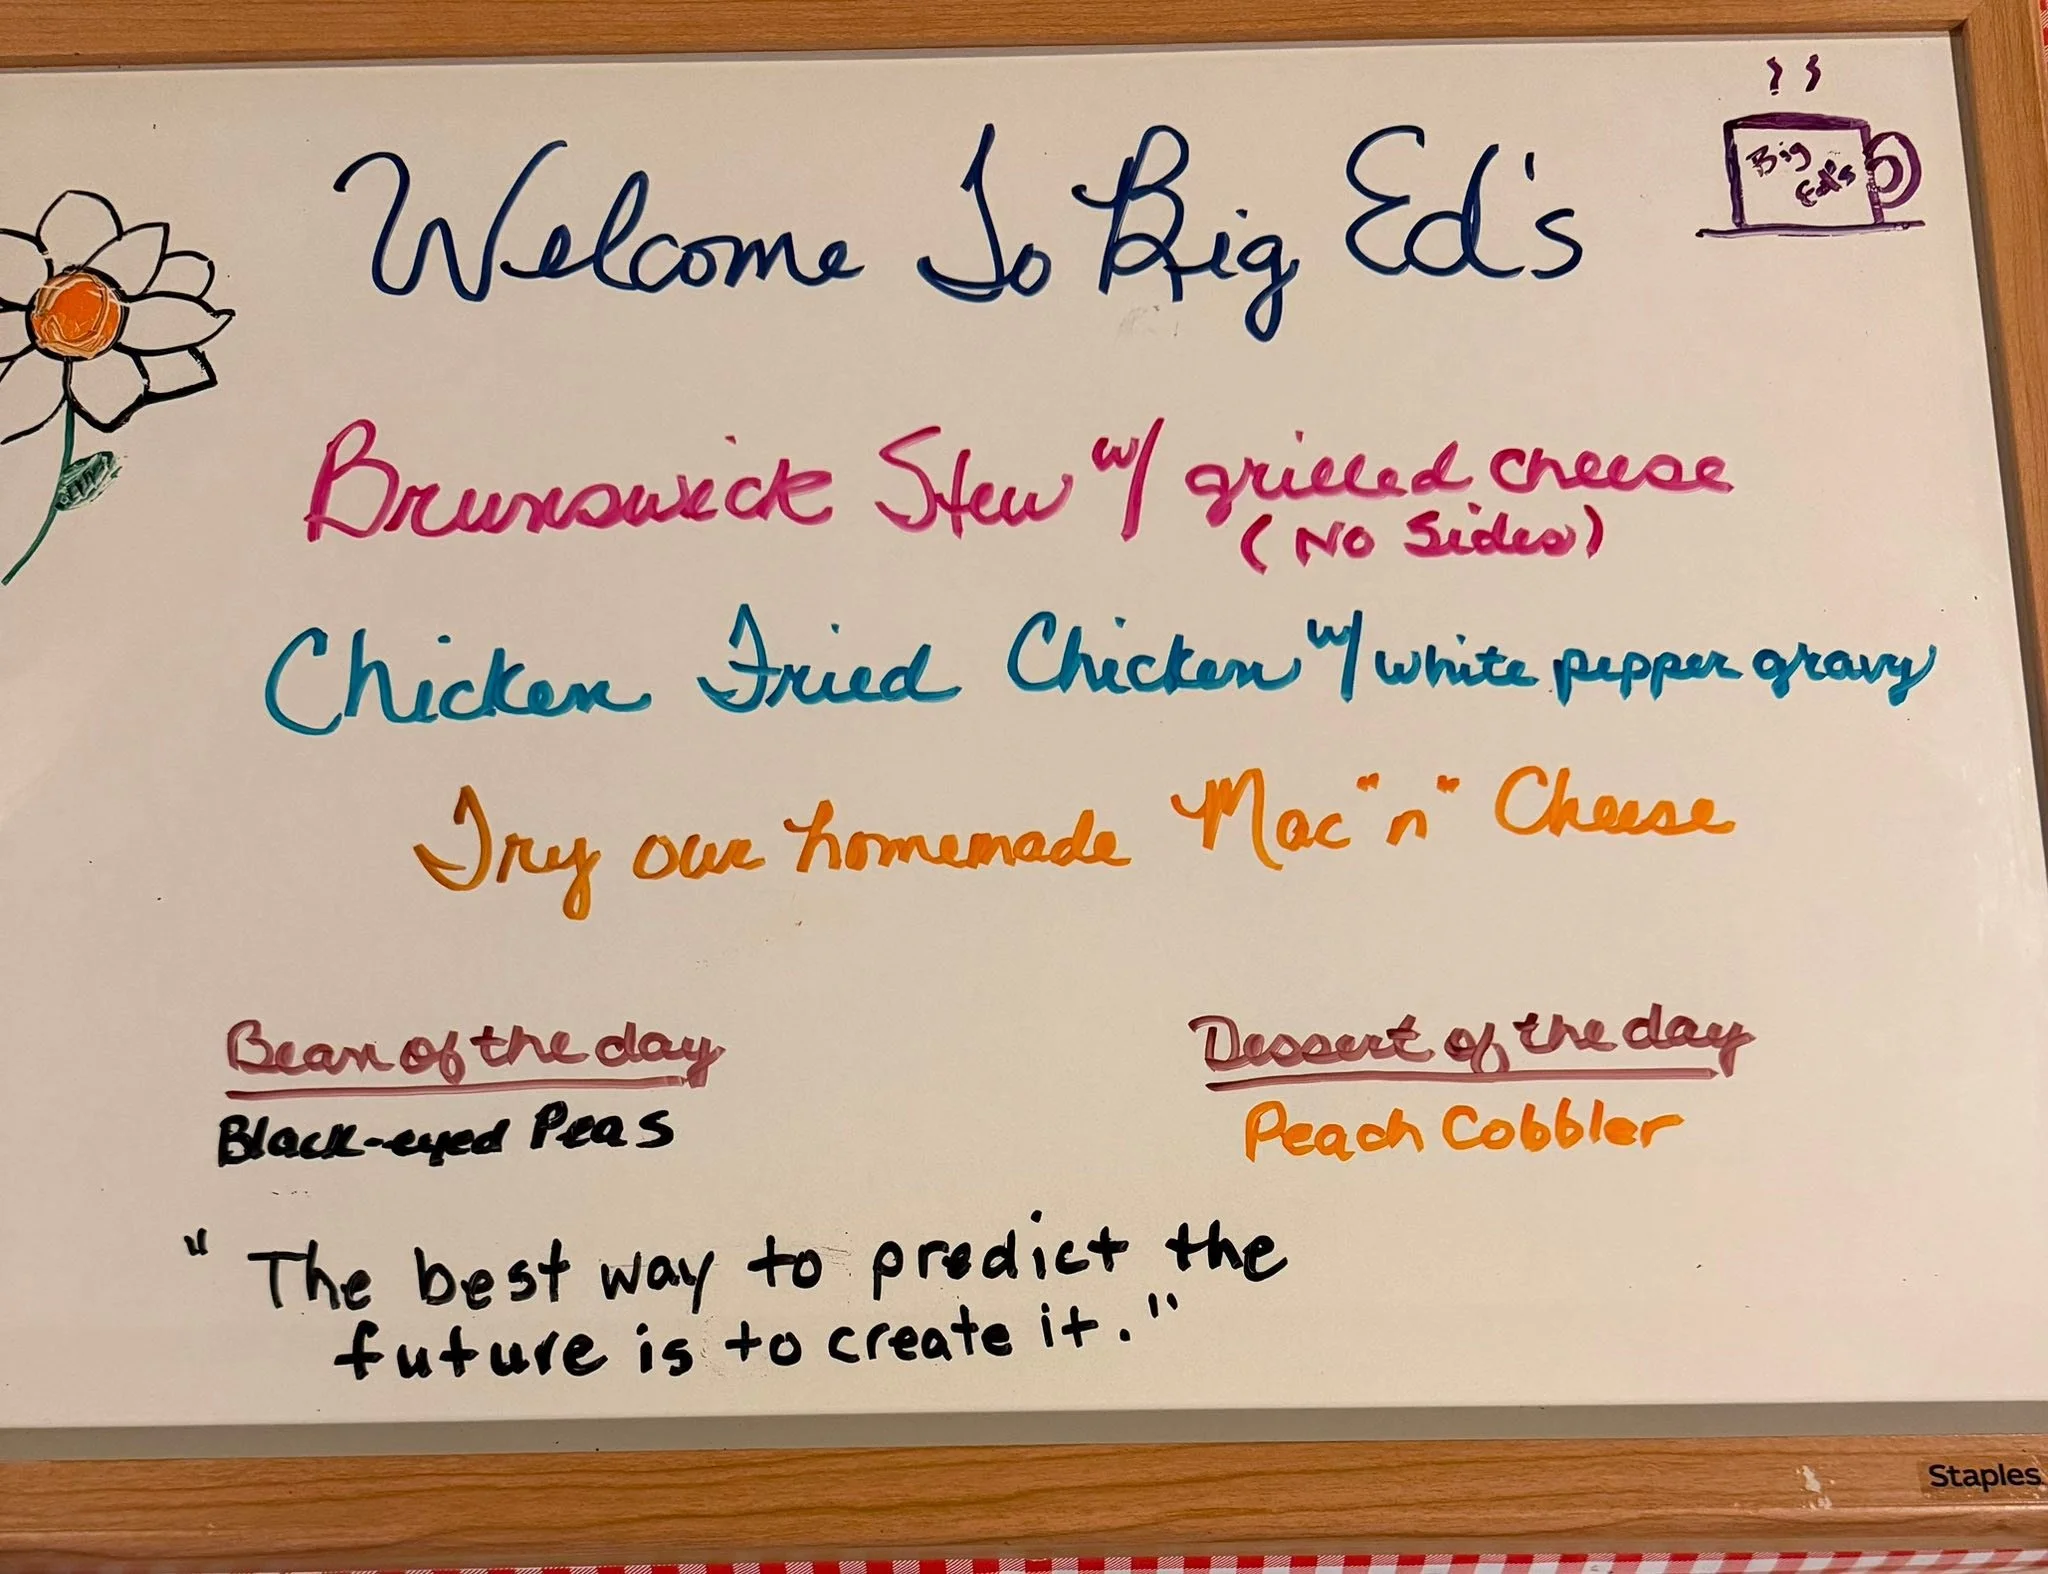 Welcome To Big Ed's
Big
Ed's
Brunswick Stew w/ grilled cheese
(No Sides)
Chicken Fried Chicken w/ white pepper gravy
Try our homemade Mac "n" Cheese
Bean of the day
Black-eyed Peas
Dessert of the day
Peach Cobbler
"The best way to predict the
future is to create it."
Staples